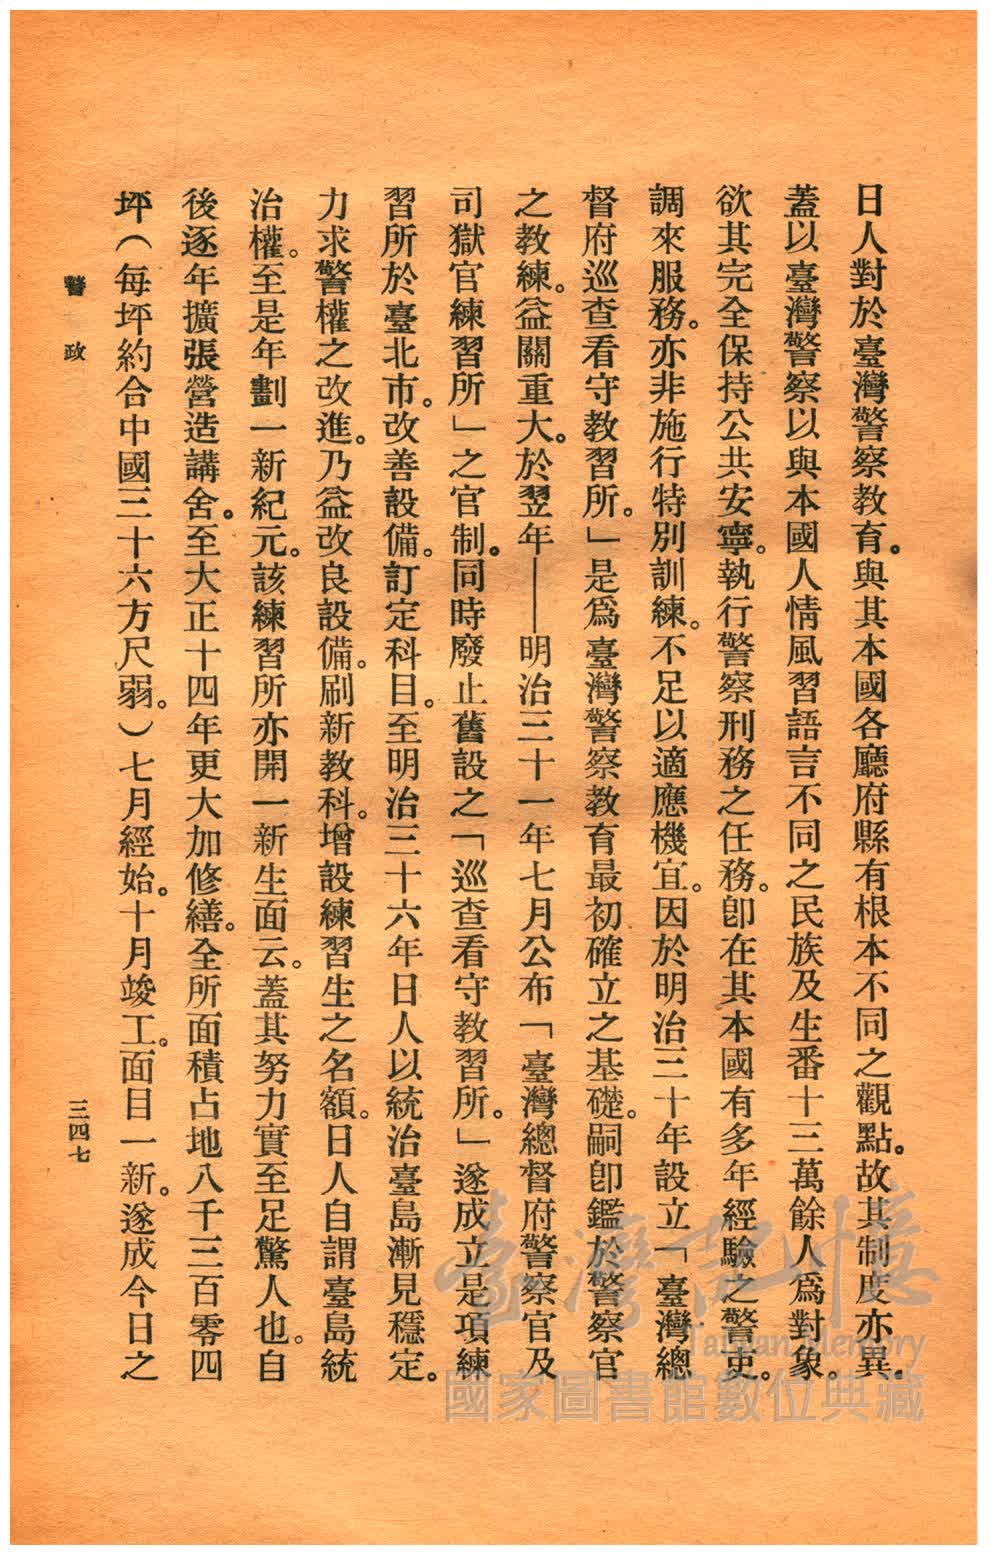 日人對於臺灣警察教育。與其本國各廳府縣有根本不同之觀點。故其制度亦異。
蓋以臺灣警察以與本國人情風習語言不同之民族及生番十三萬餘人爲對象。
欲其完全保持公共安寧。執行警察刑務之任務。卽在其本國有多年經驗之警吏。
調來服務。亦非施行特別訓練。不足以適應機宜。因於明治三十年設立「臺灣總
督府巡查看守教習所。」是爲臺灣警察教育最初確立之基礎。嗣卽鑑於警察官
之教練。益關重大。於翌年——明治三十一年七月公布「臺灣總督府警察官及
司獄官練習所」之官制。同時廢止舊設之「巡查看守教習所。」遂成立是項練
習所於臺北市。改善設備。訂定科目。至明治三十六年日人以統治臺島漸見穩定。
力求警權之改進。乃益改良設備。刷新教科。增設練習生之名額。日人自謂臺島統
治權。至是年劃一新紀元。該練習所亦開一新生面云。蓋其努力實至足驚人也。自
後逐年擴張營造講舍。至大正十四年更大加修繕。全所面積占地八千三百零四
坪（每坪約合中國三十六方尺弱。）七月經始。十月竣工。面目一新。遂成今日之
警政
三四七
臺灣記憶
Taiwan Memory
國家圖書館數位典藏